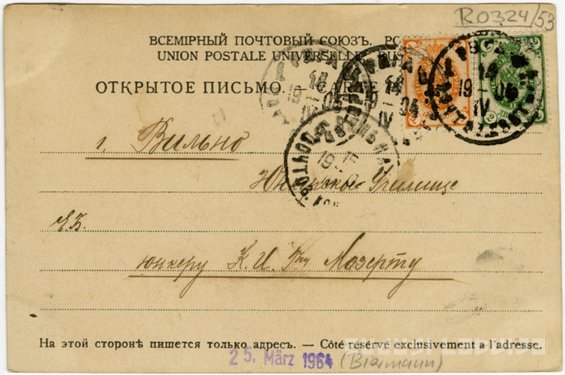 R0324/53
ВСЕМІРНЫЙ ПОЧТОВЫЙ СОЮЗЪ. РОС
UNION POSTALE UNIVERSELLE. RUS
ОТКРЫТОЕ ПИСЬМО. — CARTE
14
19 — 04
IV
г. Вильно
Юнкерское Училище
Е.Б.
юнкеру К. И. Мазерту
На этой сторонѣ пишется только адресъ. — Côté réservé exclusivement a l'adresse.
25. März 1964 (Biermann)